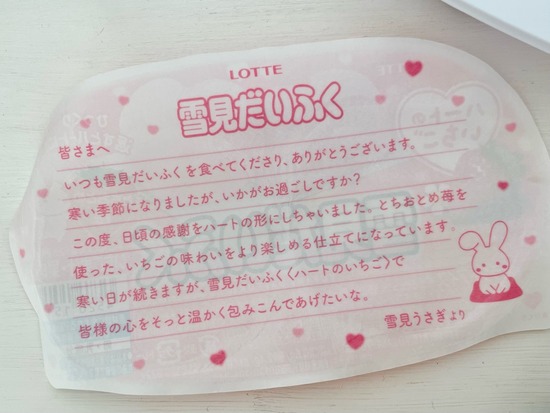 LOTTE
雪見だいふく
皆さまへ
いつも雪見だいふくを食べてくださり、ありがとうございます。
寒い季節になりましたが、いかがお過ごしですか？
この度、日頃の感謝をハートの形にしちゃいました。とちおとめ苺を
使った、いちごの味わいをより楽しめる仕立てになっています。
寒い日が続きますが、雪見だいふく〈ハートのいちご〉で
皆様の心をそっと温かく包みこんであげたいな。
雪見うさぎより